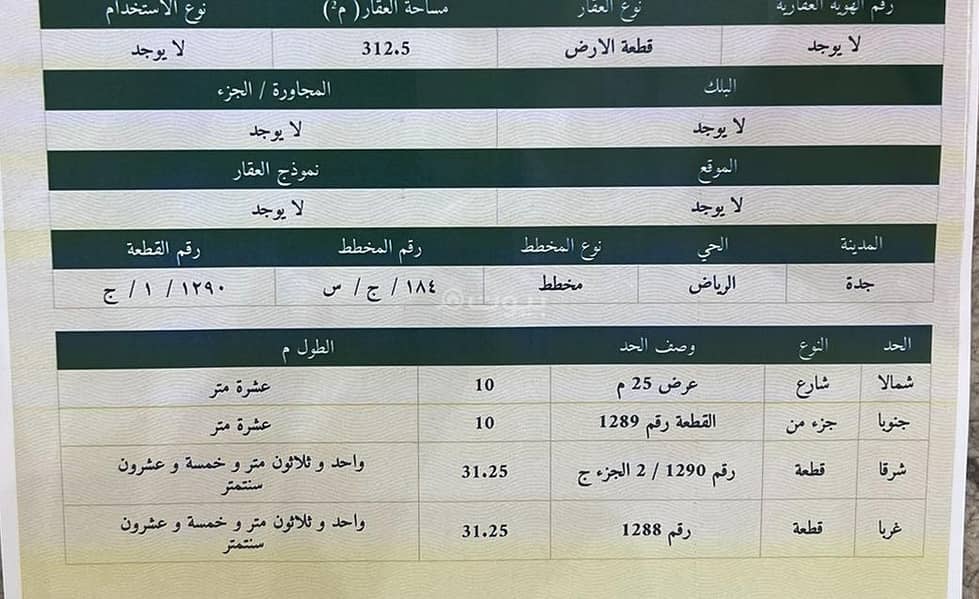 رقم الهوية العقارية نوع العقار مساحة العقار( م²) نوع الاستخدام
لا يوجد قطعة الارض 312.5 لا يوجد
البلك المجاورة / الجزء
لا يوجد لا يوجد
الموقع نموذج العقار
لا يوجد لا يوجد
المدينة الحي نوع المخطط رقم المخطط رقم القطعة
جدة الرياض مخطط ١٨٤ / ج/ س ١٢٩٠ / ١ / ج
بيوت
الحد النوع وصف الحد الطول م
شمالا شارع عرض 25 م 10 عشرة متر
جنوبا جزء من القطعة رقم 1289 10 عشرة متر
شرقا قطعة رقم 1290 / 2 الجزء ج 31.25 واحد و ثلاثون متر و خمسة و عشرون
سنتمتر
غربا قطعة رقم 1288 31.25 واحد و ثلاثون متر و خمسة و عشرون
سنتمتر